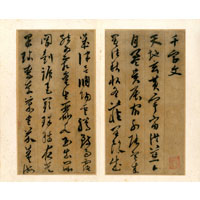 千字文
天地玄黃宇宙洪荒
日月盈昃辰宿列張寒
來暑往秋收冬藏閏餘成
歲律呂調陽雲騰致雨露
結為霜金生麗水玉出崑
岡劍號巨闕珠稱夜光
果珍李柰菜重芥薑海